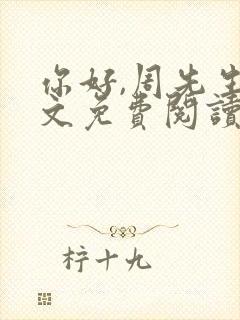 你好,周先生
文免費閱讀
柠十九